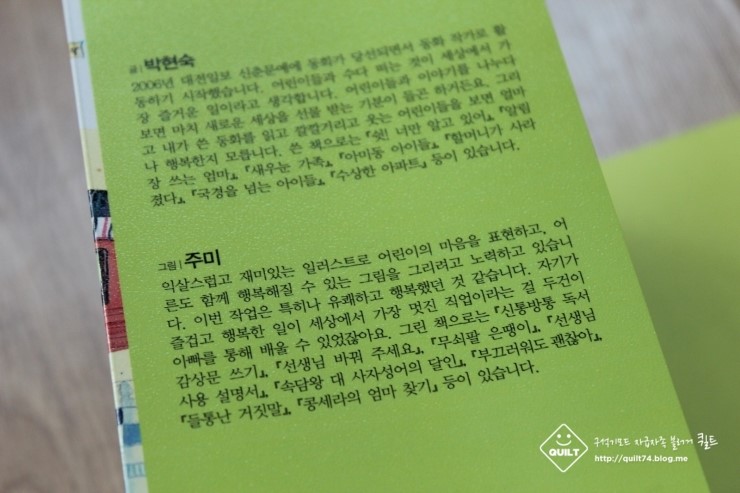 글 | 박현숙
2006년 대전일보 신춘문예에 동화가 당선되면서 동화 작가로 활
동하기 시작했습니다. 어린이들과 수다 떠는 것이 세상에서 가
장 즐거운 일이라고 생각합니다. 어린이들과 이야기를 나누다
보면 마치 새로운 세상을 선물 받는 기분이 들곤 하거든요. 그리
고 내가 쓴 동화를 읽고 깔깔거리고 웃는 어린이들을 보면 얼마
나 행복한지 모릅니다. 쓴 책으로는 『쉿! 너만 알고 있어』, 『알림
장 쓰는 엄마』, 『새우눈 가족』, 『아미동 아이들』, 『할머니가 사라
졌다』, 『국경을 넘는 아이들』, 『수상한 아파트』 등이 있습니다.
그림 | 주미
익살스럽고 재미있는 일러스트로 어린이의 마음을 표현하고, 어
른도 함께 행복해질 수 있는 그림을 그리려고 노력하고 있습니
다. 이번 작업은 특히나 유쾌하고 행복했던 것 같습니다. 자기가
즐겁고 행복한 일이 세상에서 가장 멋진 직업이라는 걸 두건이
아빠를 통해 배울 수 있었잖아요. 그린 책으로는 『신통방통 독서
감상문 쓰기』, 『선생님 바꿔 주세요』, 『무쇠팔 은땡이』, 『선생님
사용 설명서』, 『속담왕 대 사자성어의 달인』, 『부끄러워도 괜찮아』,
『들통난 거짓말』, 『콩세라의 엄마 찾기』 등이 있습니다.
QUILT
구석기모드 자급자족 블로거 퀼트
http://quilt74.blog.me